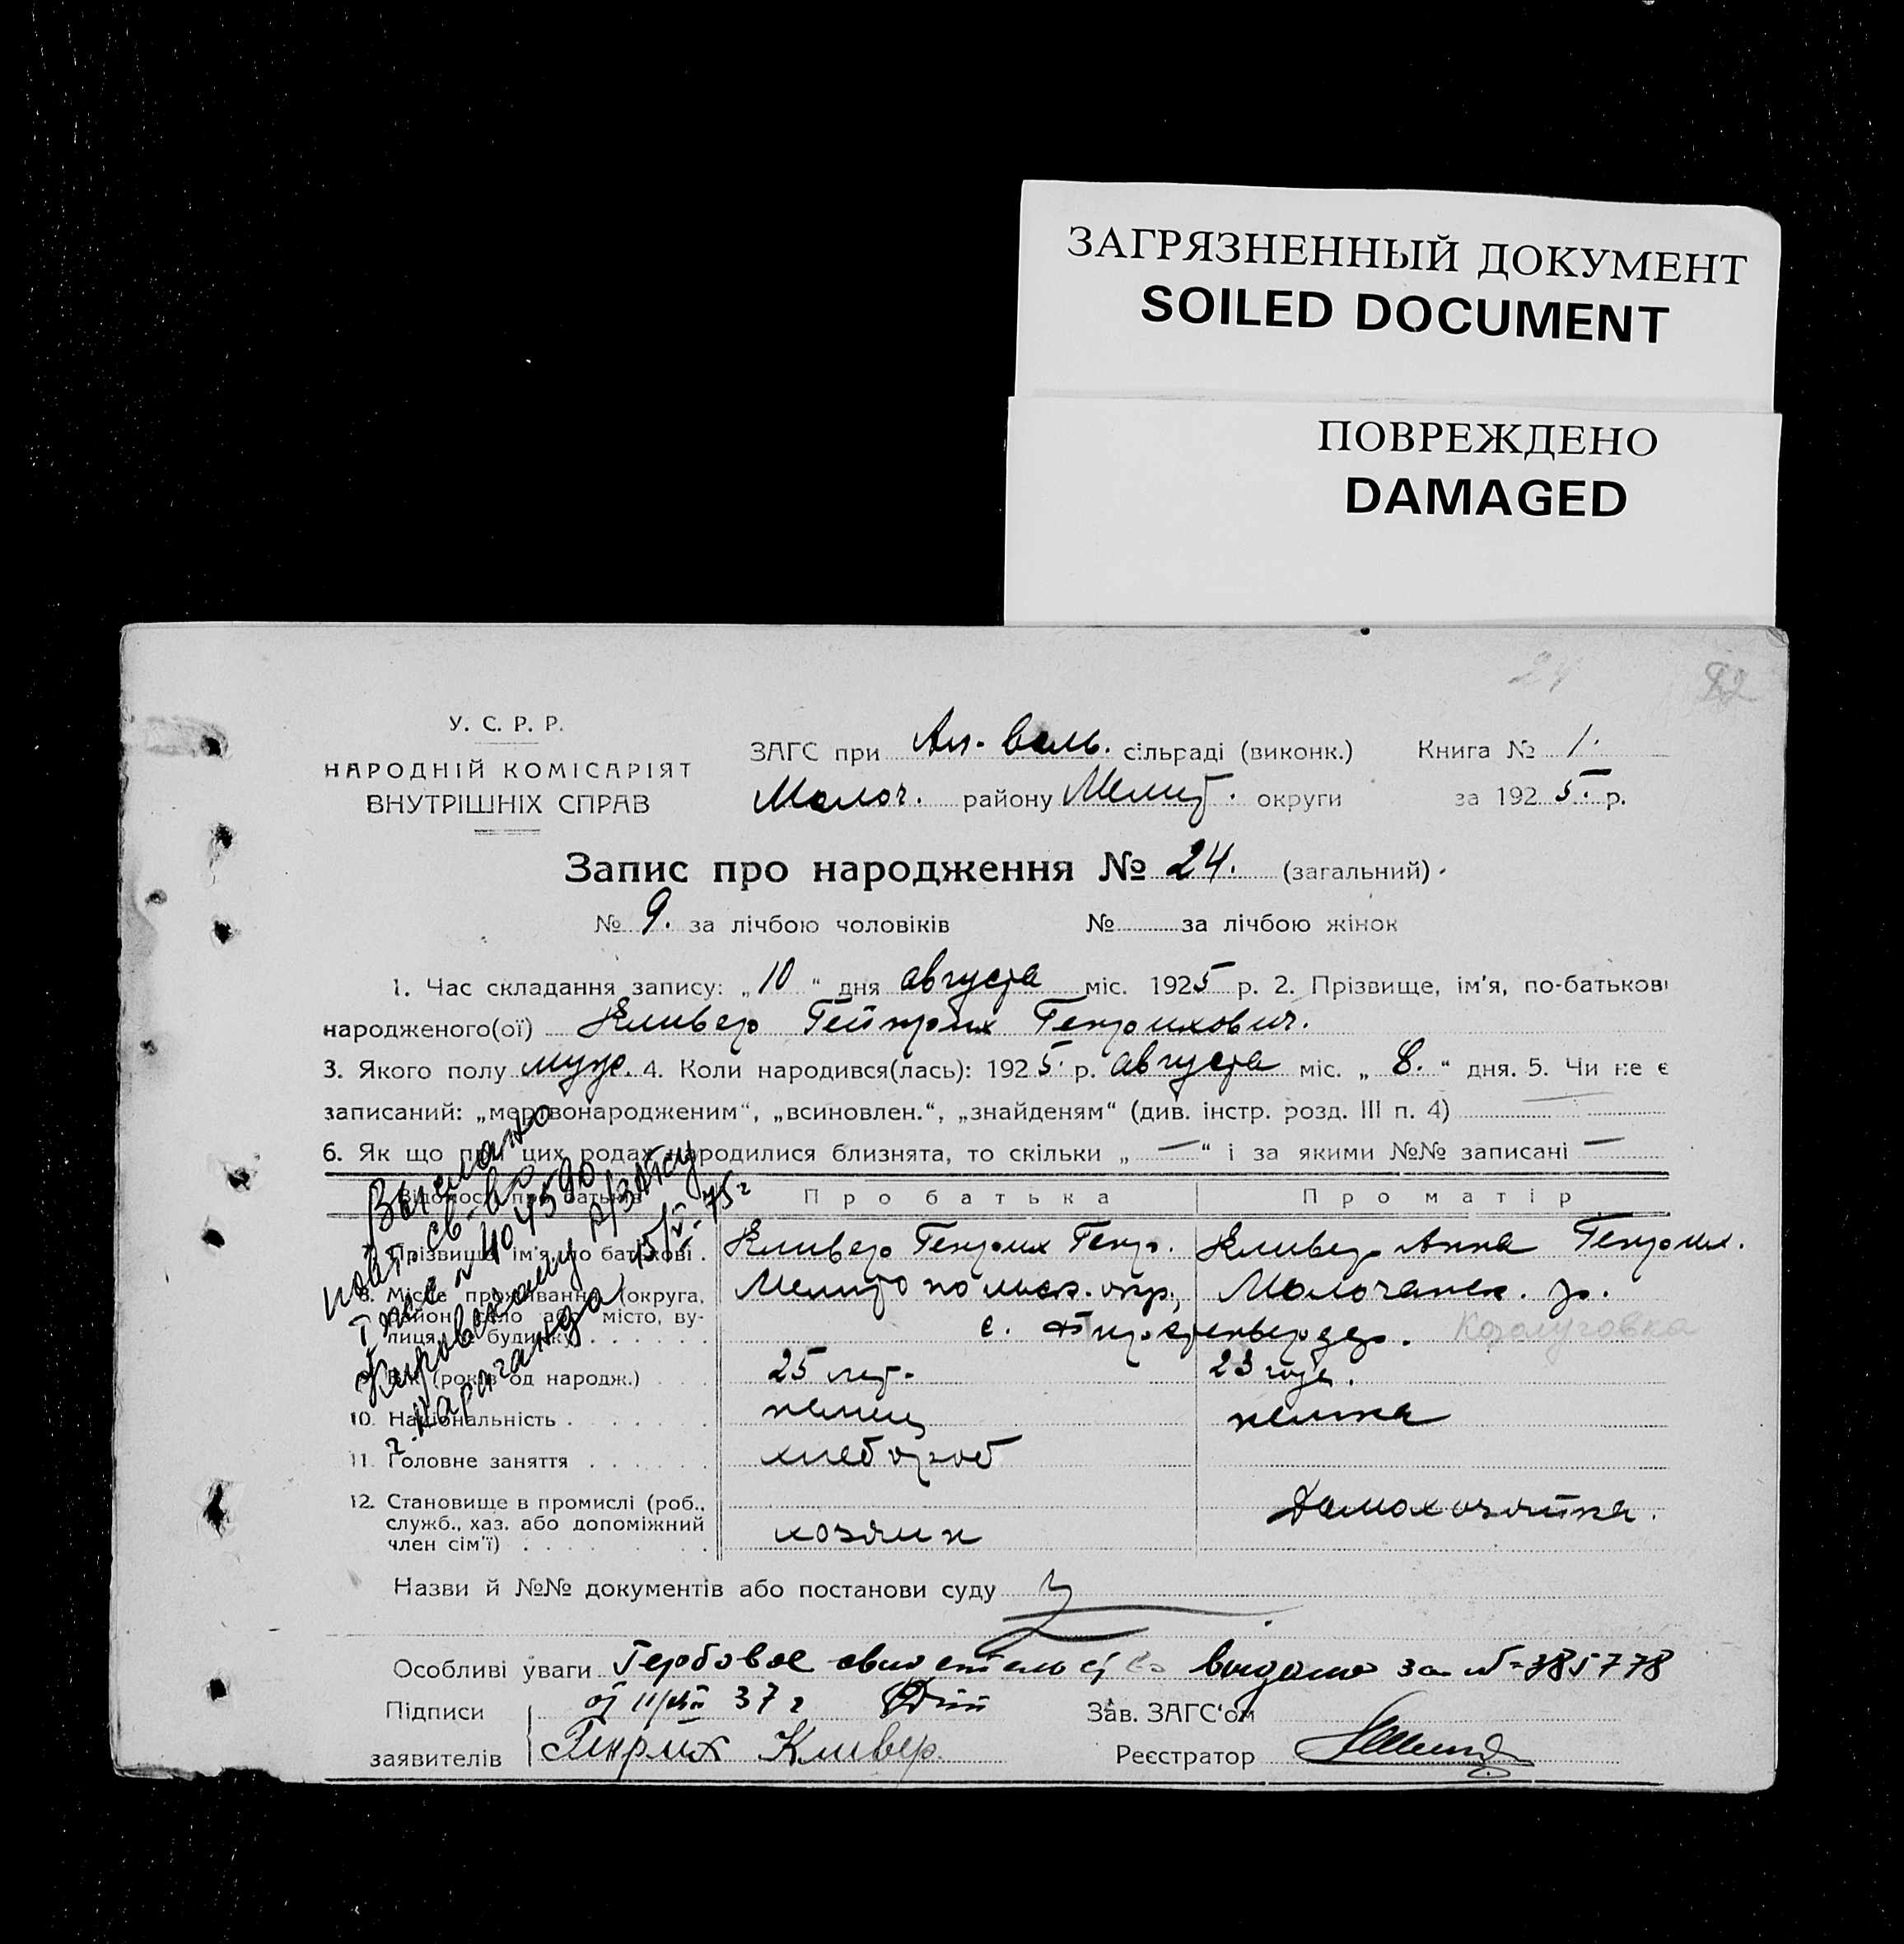 ЗАГРЯЗНЕННЫЙ ДОКУМЕНТ
SOILED DOCUMENT
ПОВРЕЖДЕНО
DAMAGED
24
У. С. Р. Р.
НАРОДНІЙ КОМІСАРІЯТ
ВНУТРІШНІХ СПРАВ
ЗАГС при Ал. Воль. сільраді (виконк.) Книга № 1.
Молоч. району Мелит. округи за 1925. р.
Запис про народження № 24. (загальний)
№ 9. за лічбою чоловіків № за лічбою жінок
1. Час складання запису: „10“ дня августа міс. 1925 р. 2. Прізвище, ім'я, по-батькові
народженого(ої) Кливер Гейнрих Генрихович.
3. Якого полу муж. 4. Коли народився(лась): 1925. р. августа міс. „8.“ дня. 5. Чи не є
записаний: „мертвонародженим“, „всиновлен.“, „знайденям“ (див. інстр. розд. III п. 4) —
6. Як що при цих родах народилися близнята, то скільки „—“ і за якими №№ записані —
Відомості про батьків Про батька Про матір
7. Прізвище, ім'я, по батькові . Кливер Генрих Генр. Кливер Анна Генрих.
8. Місце проживання (округа, Мелитопольск. окр., Молочанск. р.
район, село або місто, ву-
лиця, № будинку) . . . . . с.
9. Вік (років од народж.) . . . 25 лет. 23 года.
10. Національність . . . . . . немец немка
11. Головне заняття . . . . . . хлебороб
12. Становище в промислі (роб.,
служб., хаз. або допоміжний
член сім'ї) . . . . . . . . хозяин Домохозяйка.
Выслано
повт. св-во
I ЖЕ № 404590
Кировскому р/ЗАГСу
г. Караганда 15/V-75г
Назви й №№ документів або постанови суду
Особливі уваги Гербовое свидетельство выдано за № 385778
от 11/VIII 37 г
Підписи Зав. ЗАГС'ом
заявителів Генрих Кливер. Реєстратор